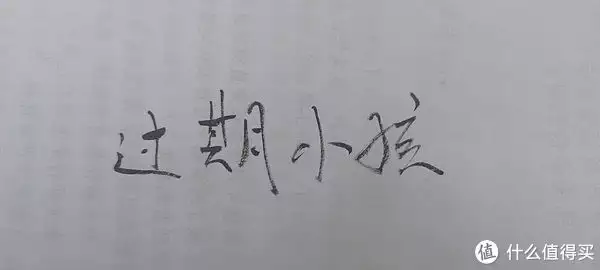 过期小孩
值 什么值得买